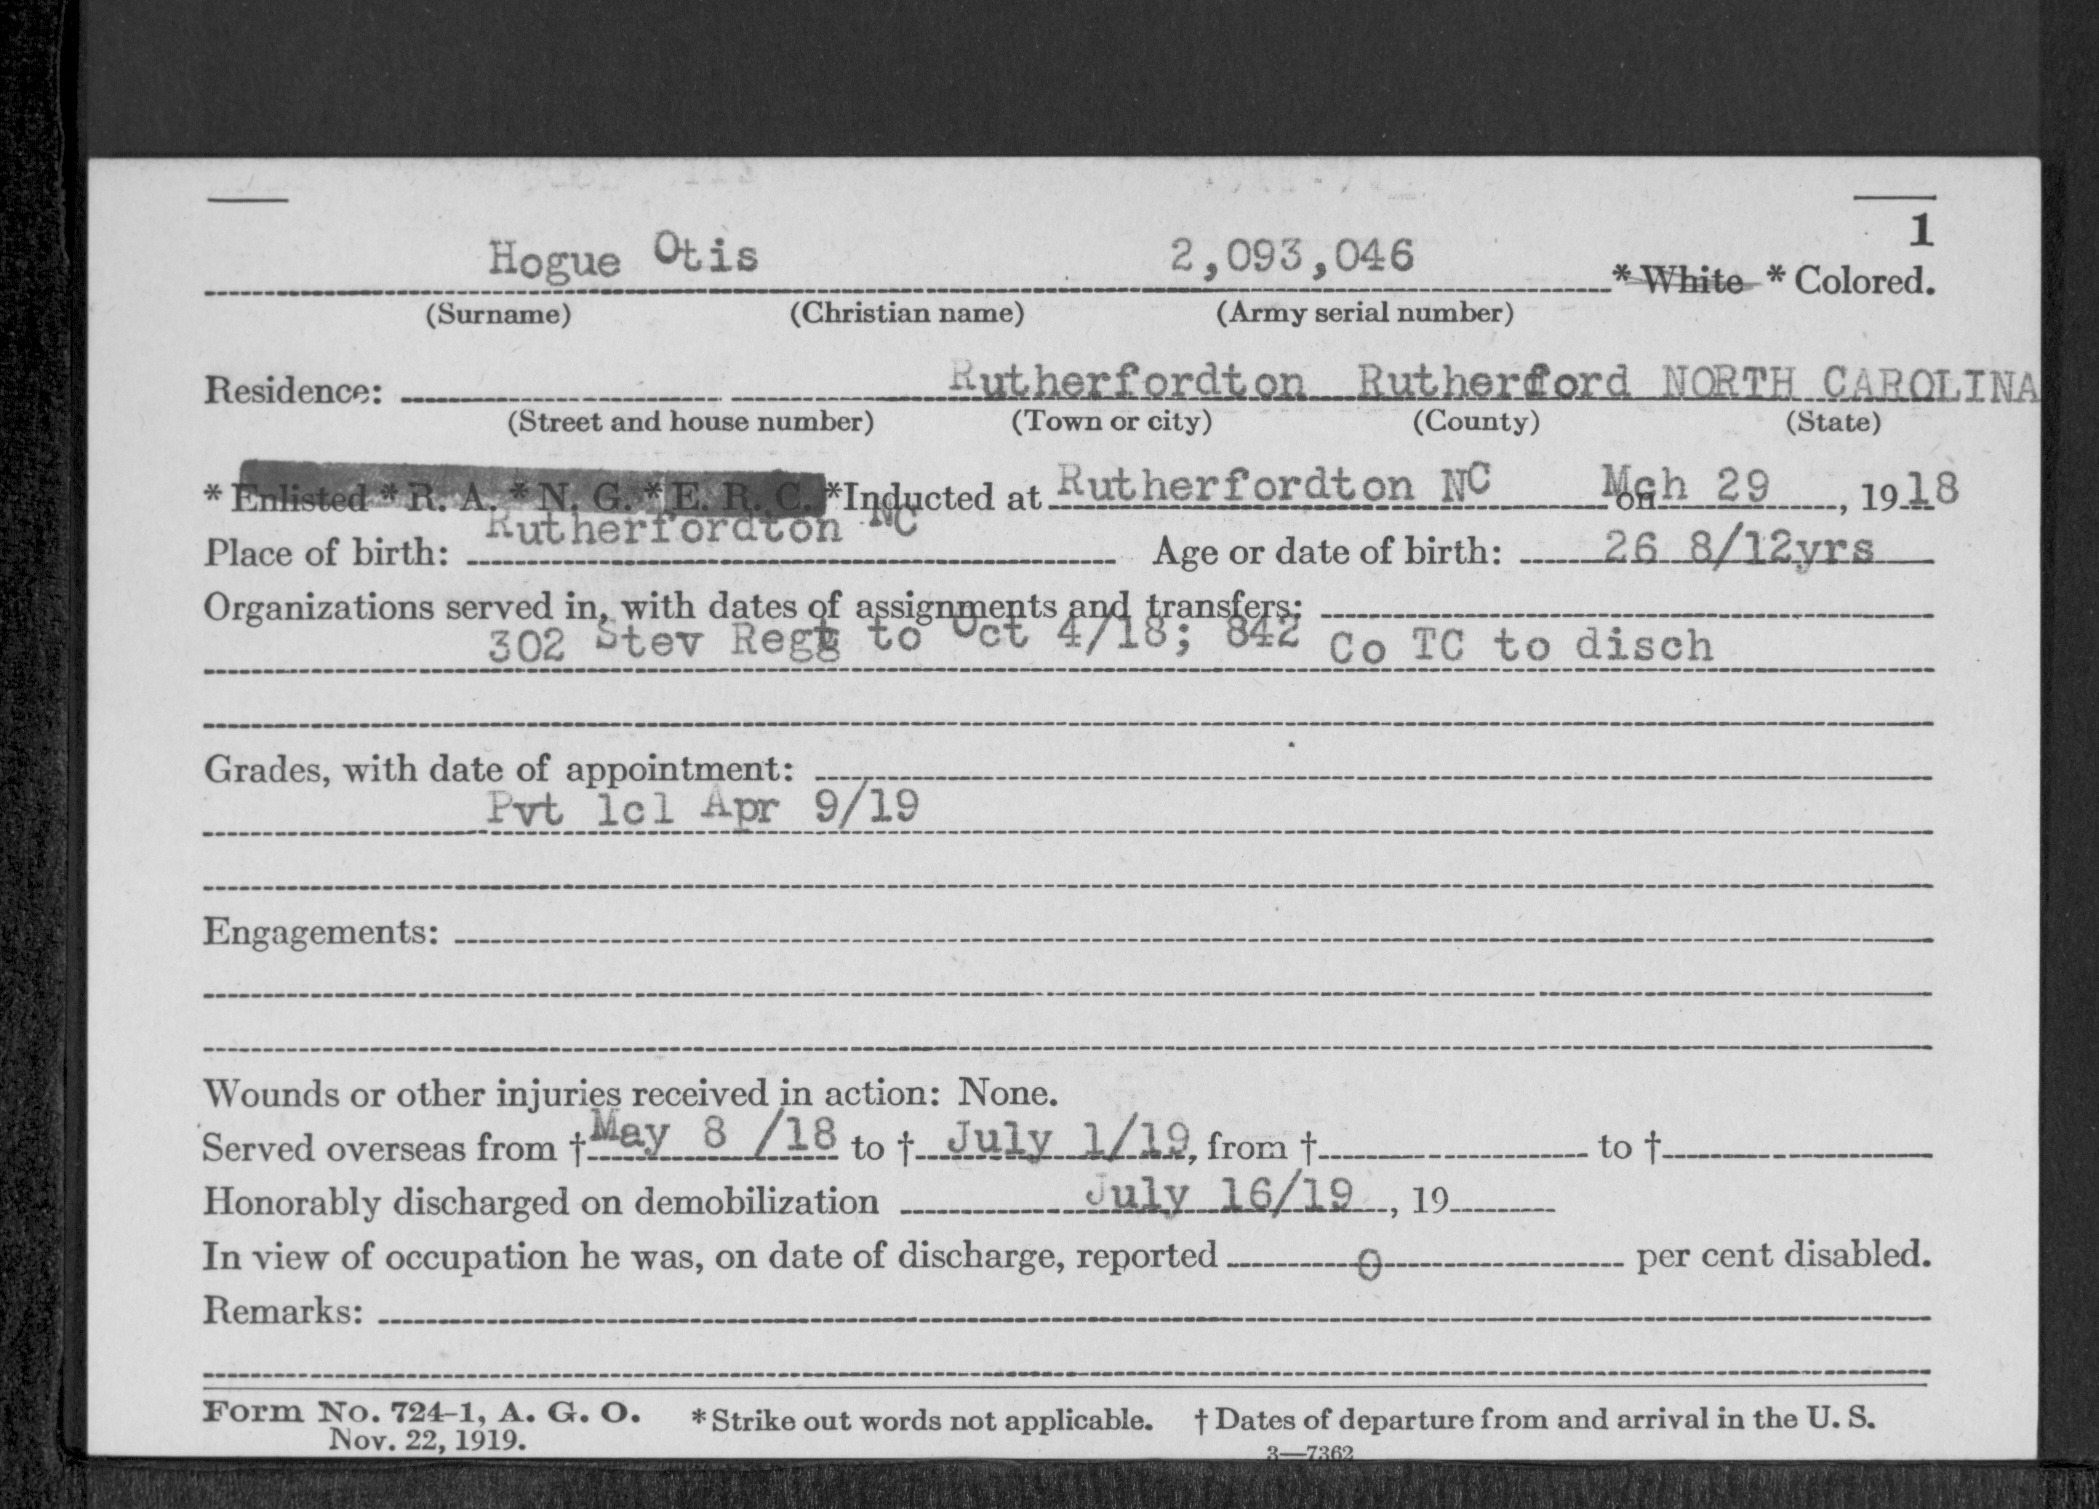 1
Hogue Otis 2,093,046 * White * Colored.
(Surname) (Christian name) (Army serial number)
Residence: Rutherfordton Rutherford NORTH CAROLINA
(Street and house number) (Town or city) (County) (State)
* Enlisted * R. A. * N. G. * E. R. C. *Inducted at Rutherfordton NC on Mch 29, 1918
Place of birth: Rutherfordton NC Age or date of birth: 26 8/12yrs
Organizations served in, with dates of assignments and transfers:
302 Stev Regt to Oct 4/18; 842 Co TC to disch
Grades, with date of appointment:
Pvt 1cl Apr 9/19
Engagements:
Wounds or other injuries received in action: None.
Served overseas from † May 8 /18 to † July 1/19, from † to †
Honorably discharged on demobilization July 16/19, 19
In view of occupation he was, on date of discharge, reported 0 per cent disabled.
Remarks:
Form No. 724-1, A. G. O. * Strike out words not applicable. † Dates of departure from and arrival in the U. S.
Nov. 22, 1919.
3—7362